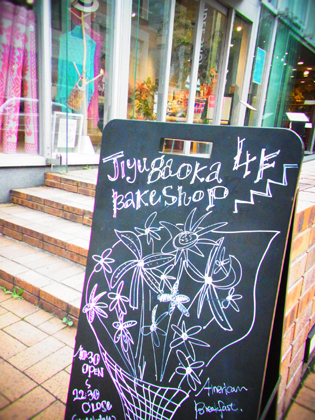 Jiyugaoka 4F
BakeShop
10:30
OPEN
22:30
CLOSE
American
Breakfast.